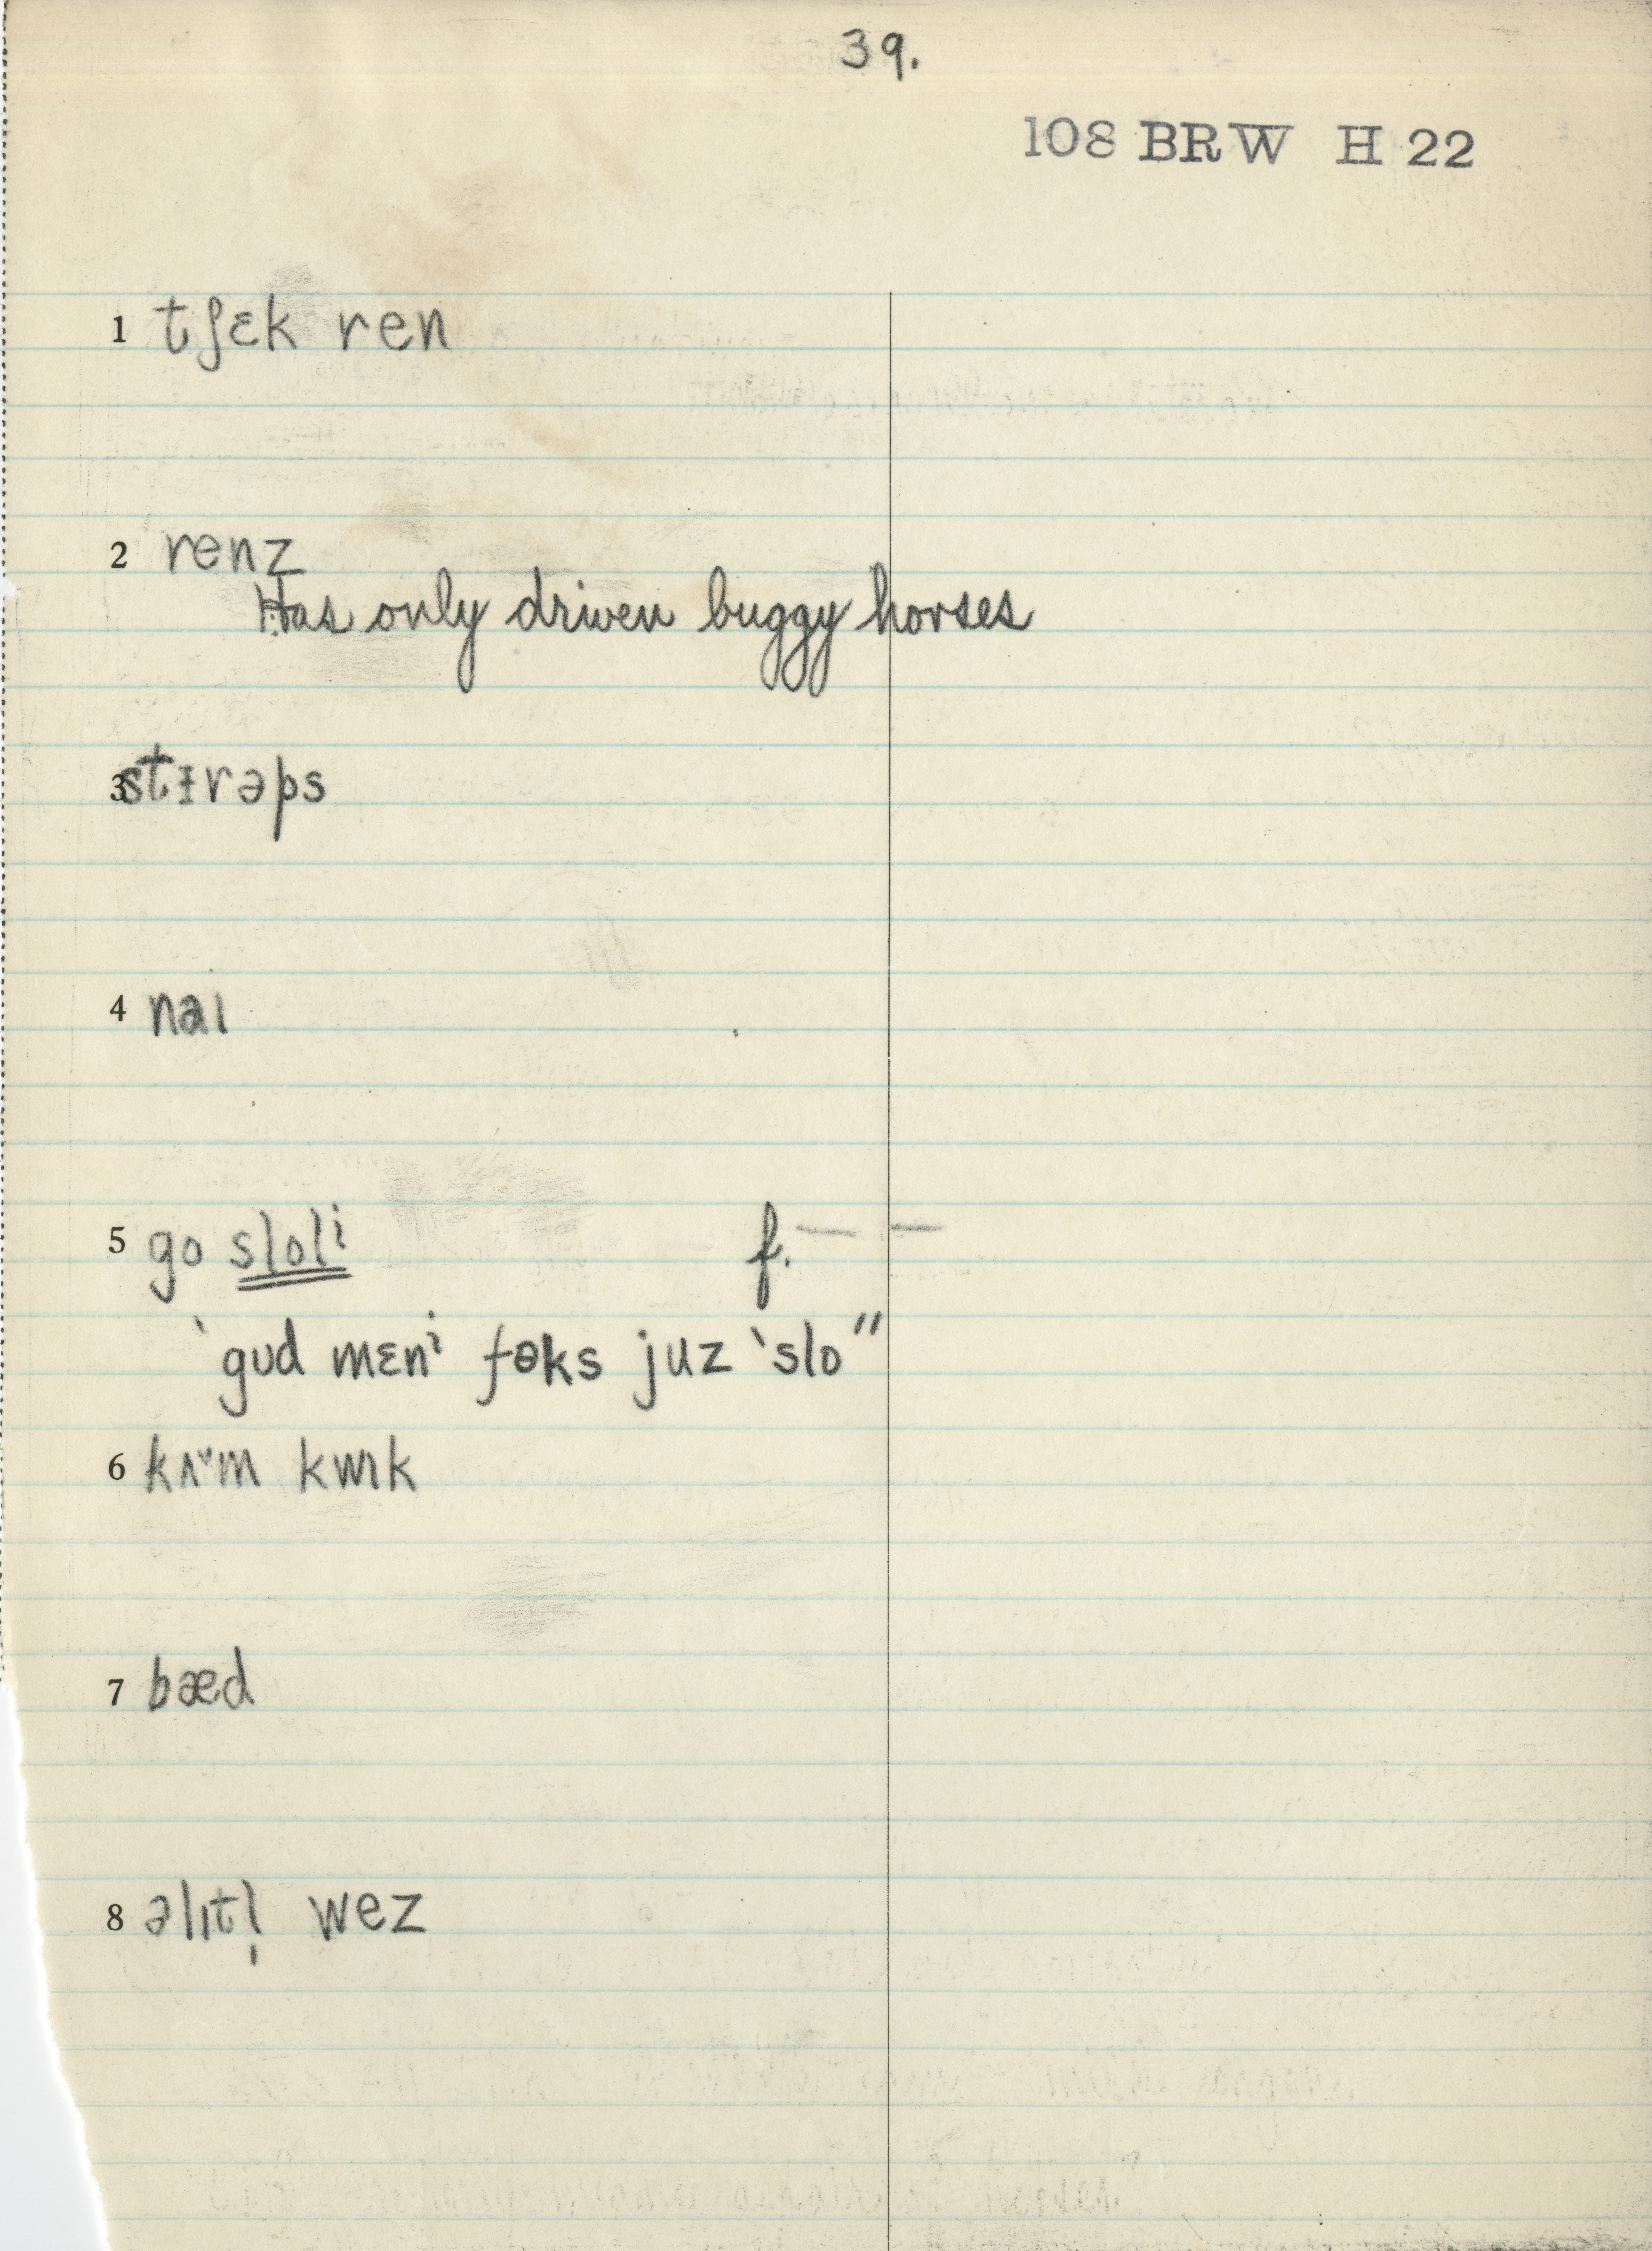 39.
108 BRW H 22
1 tʃɛk ren
2 renz
Has only driven buggy horses
3 stɨrəps
4 naɪ
5 go sloli f. — —
'gʊd mɛni foks juz 'slo"
6 kʌ˘m kwɪk
7 bæd
8 əlɪtl̩ wez